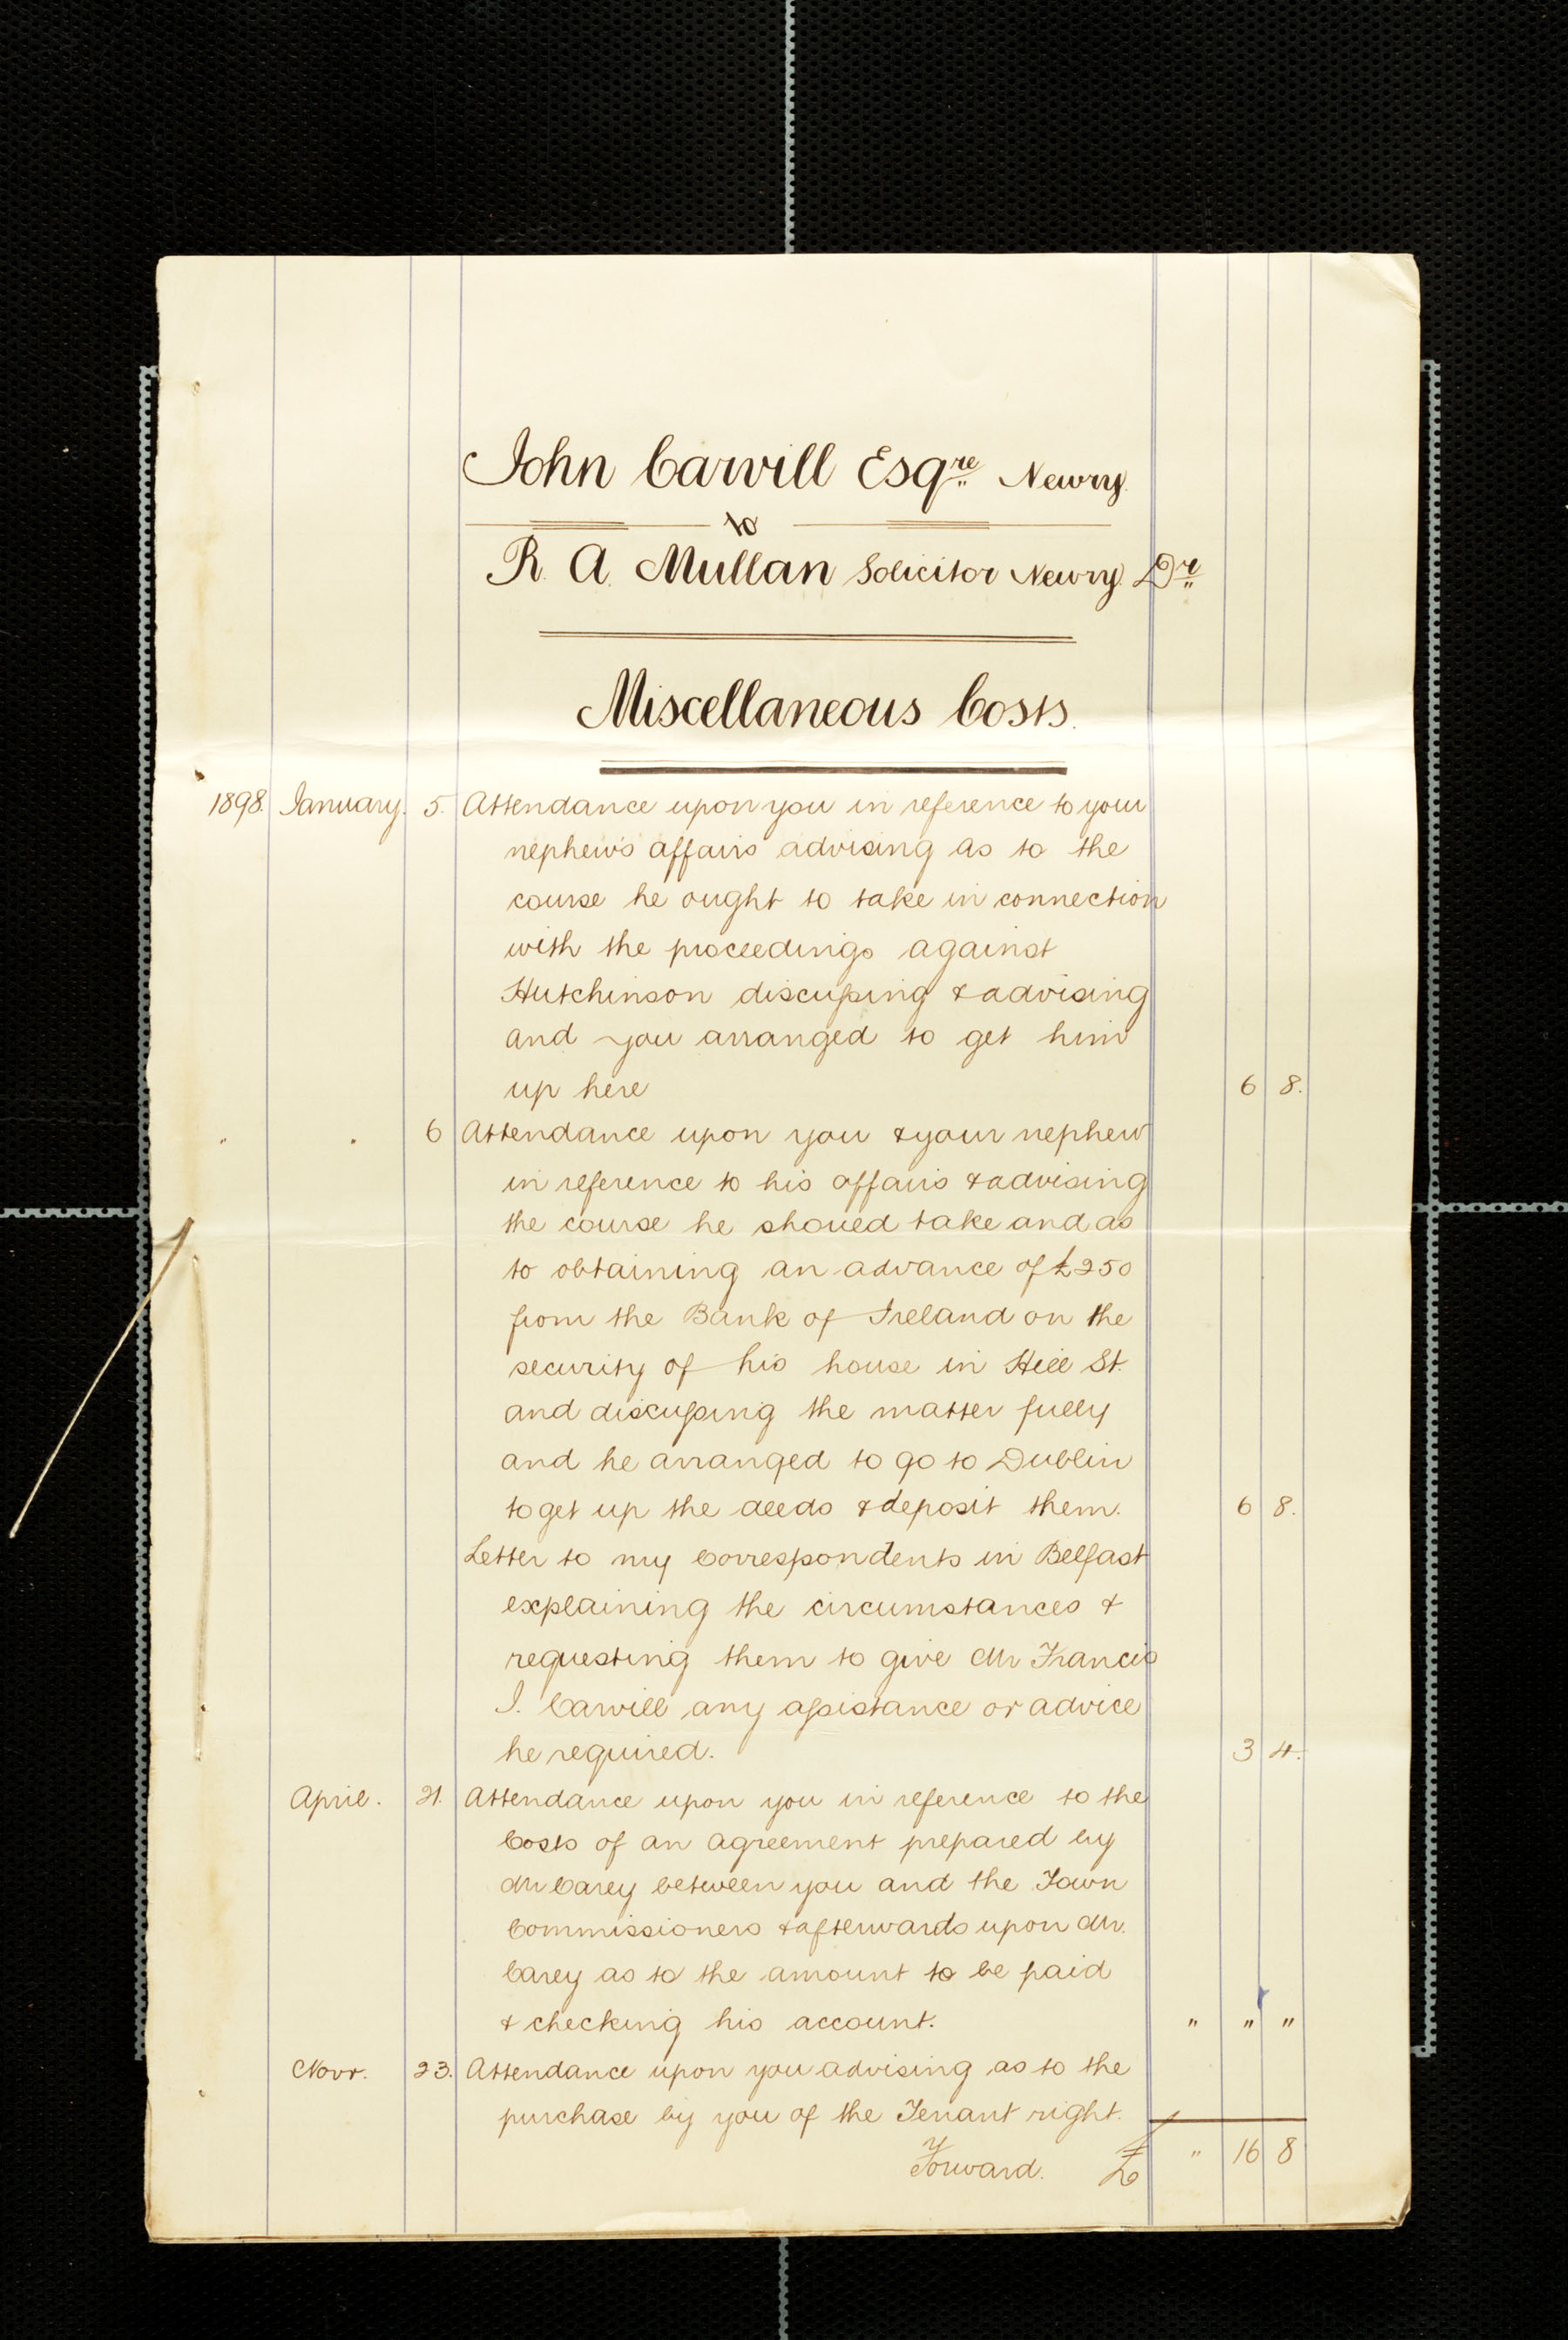 John Carvill Esqre Newry.
to
R. A. Mullan Solicitor Newry. Dr
Miscellaneous Costs.
1898. January. 5. Attendance upon you in reference to your
nephew's affairs advising as to the
course he ought to take in connection
with the proceedings against
Hutchinson discussing & advising
and you arranged to get him
up here 6 8.
" . 6 Attendance upon you & your nephew
in reference to his affairs & advising
the course he should take and as
to obtaining an advance of £250
from the Bank of Ireland on the
security of his house in Hill St.
and discussing the matter fully
and he arranged to go to Dublin
to get up the deeds & deposit them. 6 8.
Letter to my Correspondents in Belfast
explaining the circumstances &
requesting them to give Mr Francis
J. Carvill any assistance or advice
he required. 3 4.
April. 21. Attendance upon you in reference to the
Costs of an agreement prepared by
Mr Carey between you and the Town
Commissioners & afterwards upon Mr.
Carey as to the amount to be paid
& checking his account. " " "
Novr. 23. Attendance upon you advising as to the
purchase by you of the Tenant right.
Forward. £ " 16 8